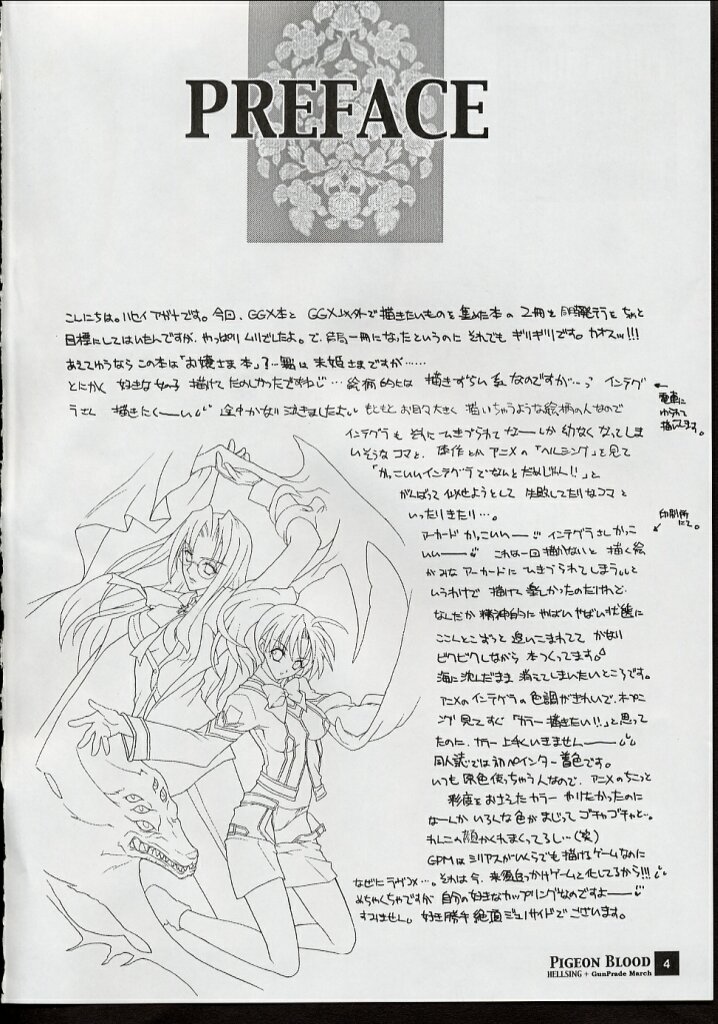 PREFACE
こんにちは。ハセイアガナです。今回、GGX本と GGX以外で描きたいものを集めた本の 2冊を同時発行をちょと
目標にしてはいたんですが、やっぱりムリでしたよ。で、結局一冊になったというのに それでもギリギリです。カオスッ!!!
あえてゆうなら この本は「お嬢さま本」?…舞は末姫さまですが……
とにかく 好きな女の子 描けて たのしかったですね…絵柄的には 描きずらい系なのですが…っ インテグ
ラさん 描きたく――い 途中かなり泣きましたよ。もともとお目々大きく 描いちゃうような絵柄の人なので
インテグラも それにひきづられて なーーしか 幼なくなってしま
いそうなコマと、原作とかアニメの「ヘルシング」を見て
「かっこいいインテグラでなんとだめじゃん!!」と
がんばって 似せようとして 失敗してたりなコマと
いったりきたり…。
電車に
ゆられて
描いてます。
印刷所
にて。
アーカード かっこいい―― インテグラさん かっこ
いい―― これは一回描かないと 描く絵
がみな アーカードに ひきづられてしまうと
いうわけで 描けて 楽しかったのだけれど、
なんだか 精神的に やばいやばい状態に
とことん 追いこまれてて かなり
ビクビクしながら 本つくってます。
海に沈んだまま 消えてしまいたいところです。
アニメの インテグラの 色調がきれいで、オープニ
ング 見てすぐ「カラー描きたい!!」と思って
たのに、カラー 上手くいきません――
同人誌では 初ペインター 着色です。
いつも 原色使っちゃう人なので、アニメのちょこっと
彩度をおさえたカラー やりたかったのに
なーんか いろんな色がまじって ゴチャゴチャと…。
わんこの顔かくれまくってるし…(笑)
GPMは シリアスがいくらでも描けるゲームなのに
なぜにラヴコメ…。それは今、来須追っかけゲームと化してるから!!!
めちゃくちゃですが 自分の好きなカップリングなのですよ――
すみません。好き勝手 絶頂 ジェノサイドでございます。
PIGEON BLOOD
HELLSING + GunPrade March
4